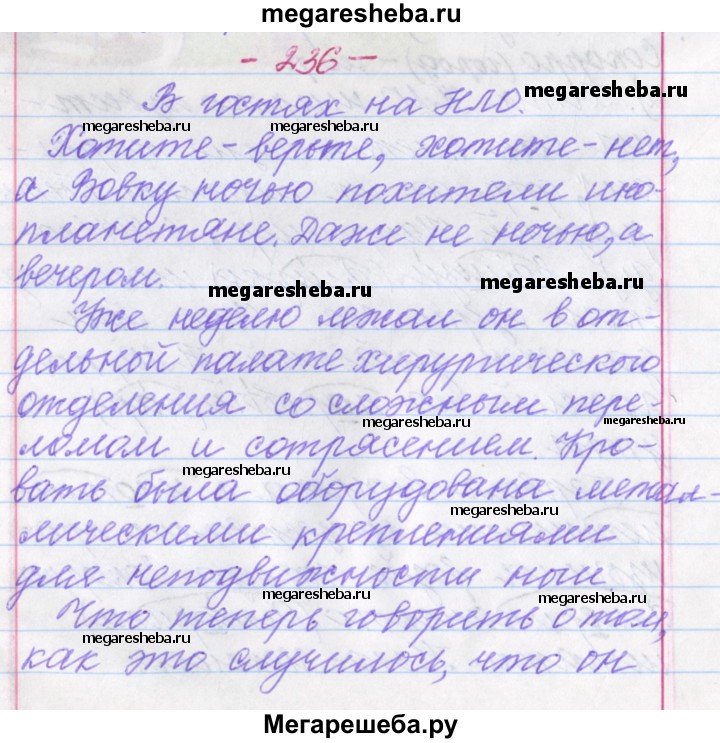 megaresheba.ru
- 236 -
В гостях на НЛО.
megaresheba.ru
megaresheba.ru
megaresheba.ru
Хотите - верьте, хотите - нет,
а Вовку ночью похитили ино-
планетяне. Даже не ночью, а
вечером.
megaresheba.ru
megaresheba.ru
Уже неделю лежал он в от-
дельной палате хирургического
отделения со сложным пере-
megaresheba.ru
ломом и сотрясением. Кро-
megaresheba.ru
вать была оборудована метал-
megaresheba.ru
лическими креплениями
для неподвижности ноги.
megaresheba.ru
Что теперь говорить о том,
megaresheba.ru
как это случилось, что он
megaresheba.ru
Мегарешеба.ру